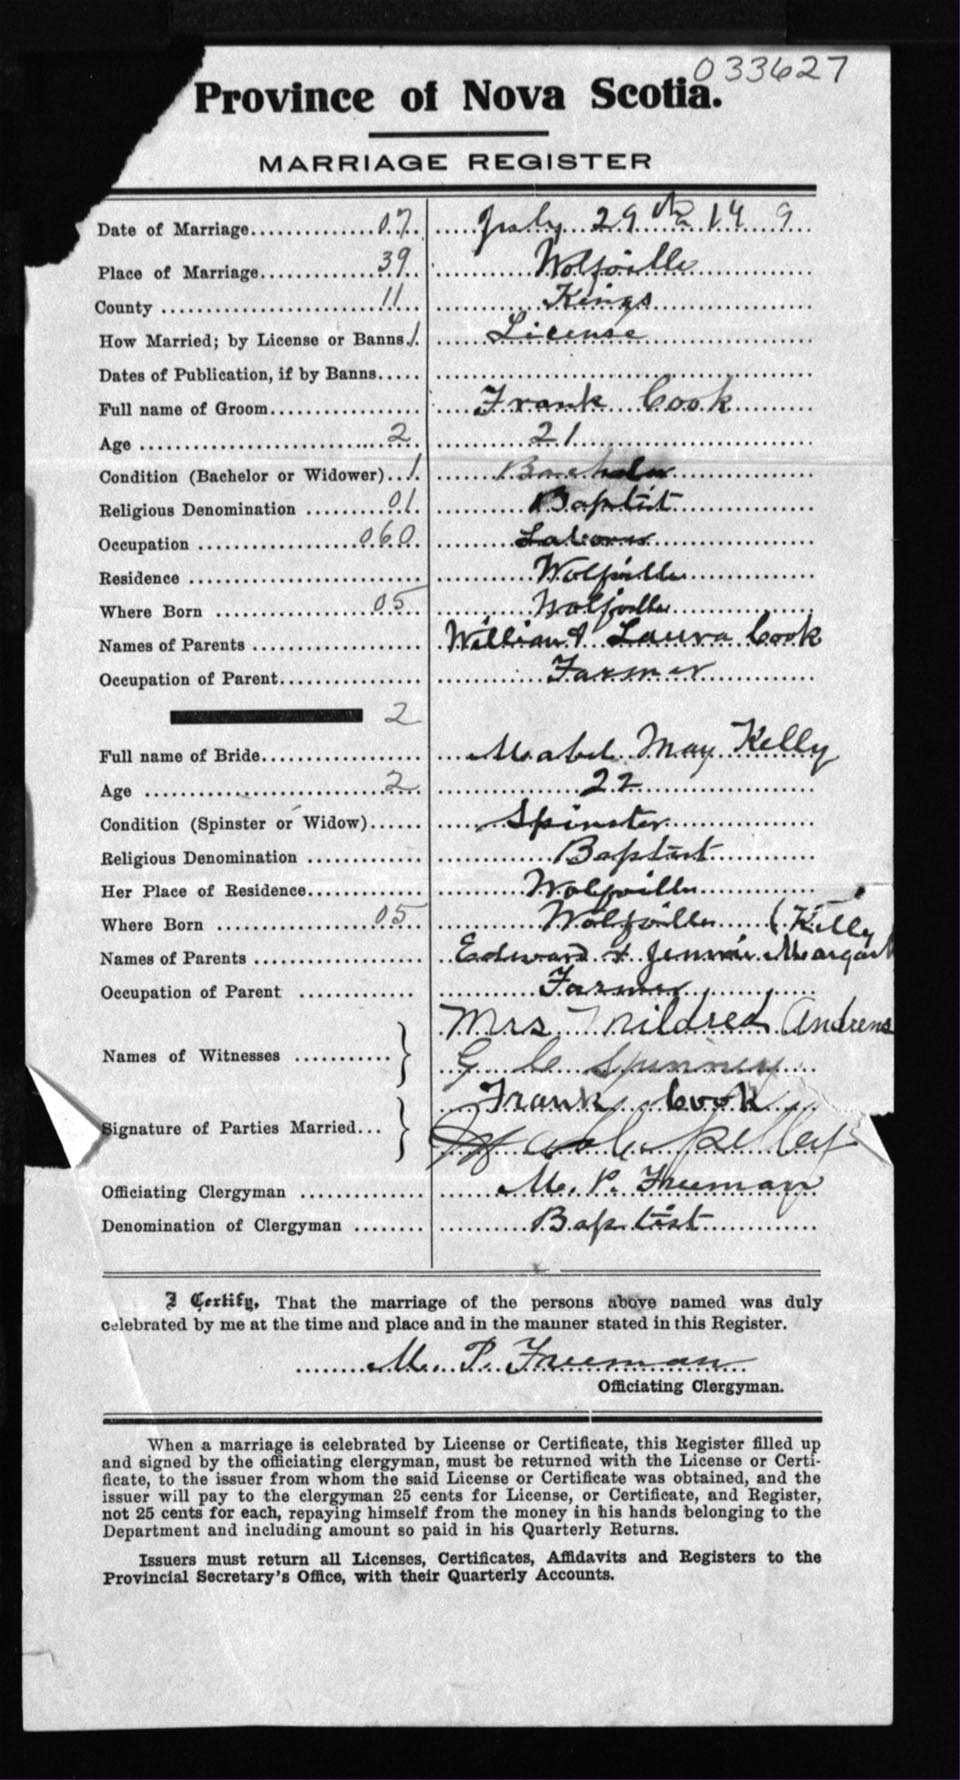 033627
Province of Nova Scotia.
MARRIAGE REGISTER
Date of Marriage..............07.. .....July 29th 19 9
Place of Marriage..............39. Wolfville
County ........................11. Kings
How Married; by License or Banns.1. License
Dates of Publication, if by Banns.....
Full name of Groom.................. Frank Cook
Age ........................2.. 21
Condition (Bachelor or Widower)...1. Bachelor
Religious Denomination ........01. Baptist
Occupation ................060. Laborer
Residence ........................ Wolfville
Where Born ................05. Wolfville
Names of Parents .................... William & Laura Cook
Occupation of Parent................. Farmer
2
Full name of Bride.................... Mabel May Kelly
Age ........................2.. 22
Condition (Spinster or Widow)...... Spinster
Religious Denomination ............. Baptist
Her Place of Residence............. Wolfville
Where Born ................05. Wolfville (Kelly
Names of Parents .................... Edward & Jennie Margaret
Occupation of Parent .............. Farmer
Names of Witnesses ........... } Mrs Mildred Andrews
G C Spinney
Signature of Parties Married... } Frank Cook
Mable Kelley
Officiating Clergyman ............... M. P. Freeman
Denomination of Clergyman ........ Baptist
I Certify, That the marriage of the persons above named was duly
celebrated by me at the time and place and in the manner stated in this Register.
M. P. Freeman
Officiating Clergyman.
When a marriage is celebrated by License or Certificate, this Register filled up
and signed by the officiating clergyman, must be returned with the License or Certi-
ficate, to the issuer from whom the said License or Certificate was obtained, and the
issuer will pay to the clergyman 25 cents for License, or Certificate, and Register,
not 25 cents for each, repaying himself from the money in his hands belonging to the
Department and including amount so paid in his Quarterly Returns.
Issuers must return all Licenses, Certificates, Affidavits and Registers to the
Provincial Secretary's Office, with their Quarterly Accounts.